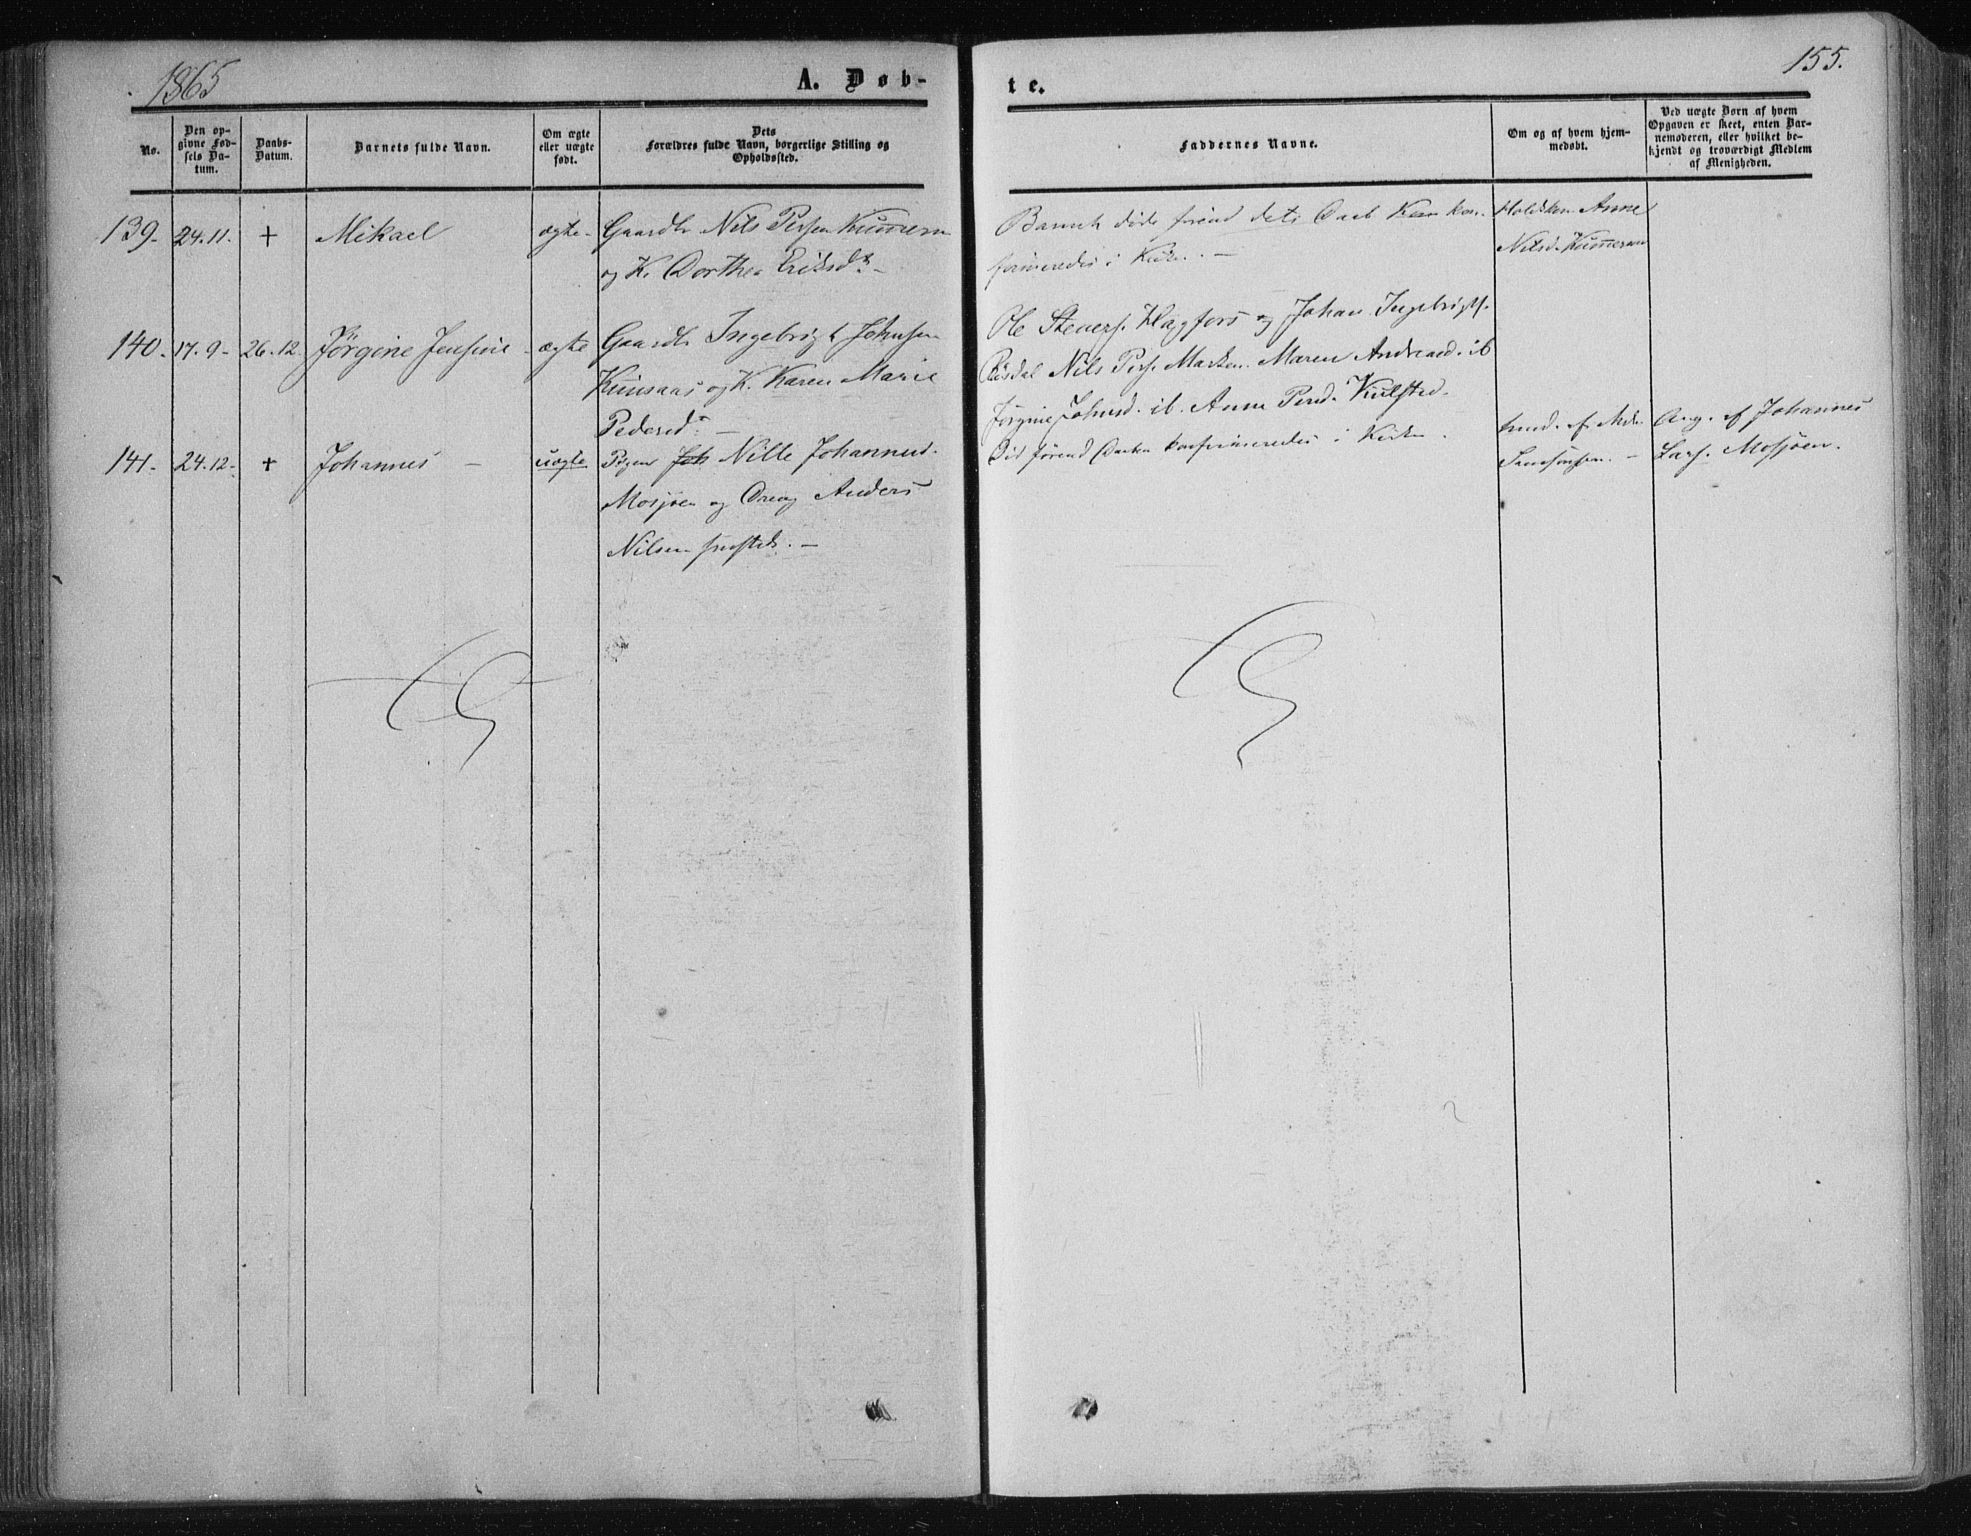 1865
A. Døb-
te.
155.
No.
Den op-
givne Fød-
sels Da-
tum.
Daabs-
Datum.
Barnets fulde Navn.
Om ægte
eller uægte
født.
Dets
Forældres fulde Navn, borgerlige Stilling og
Opholdssted.
Faddernes Navne.
Om og af hvem hjem-
medøbt.
Ved uægte Børn af hvem
Opgaven er skeet, enten Bar-
nemoderen, eller hvilket be-
kjendt og troværdigt Medlem
af Menigheden.
139. 24.11. + Mikael ægte- Gaardbr Nils Persen
og K. Dorthea Eriksdr. -
Barnet døde førend dets Daab kon-
firmeredes i Kirken. -
Anne
Nilsd.
140. 17.9- 26.12. Jørgine Jensine ægte Gaardbr Ingebrigt Johnsen
og K. Karen Marie
Pedersdr. -
Ole og Johan Ingebrigts.
Nils Pers. Maren Andreasd. ib
Jørgine Johnsd. ib. Anne Persd. Kulsted.
141. 24.12. + Johannes - uægte Pigen Nille Johannesd.
Mosjøen og Anders
Nilsen -
Død førend Daaben konfirmeredes i Kirken.
af
Ang. af Johannes
Lars. Mosjøen.